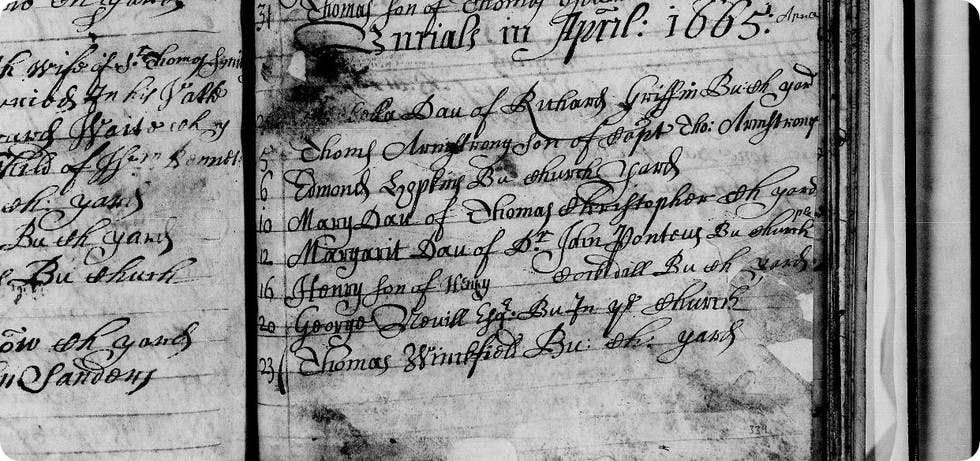 k wife of Sr Thomas
in his Vallt
ward Waite ch y
Child of Bennett
ch: yard
Bu ch yard
Bu Church
ch yard
Sanders
31 Thomas son of Thomas
Burials in April: 1665:
Dau of Richard Griffin Bu ch yard
5 Thoms Armstrong son of Capt Tho: Armstrong
6 Edmond Hopkins Bu Church yard
10 Mary Dau of Thomas Christopher ch yard
12 Margarit Dau of Dr John Ponteus Bu Church
16 Henry son of Henry Cockdill Bu ch yard
20 George Nevill Esqr. Bu In ye Church
23 Thomas Winckfield Bu: ch: yard
334